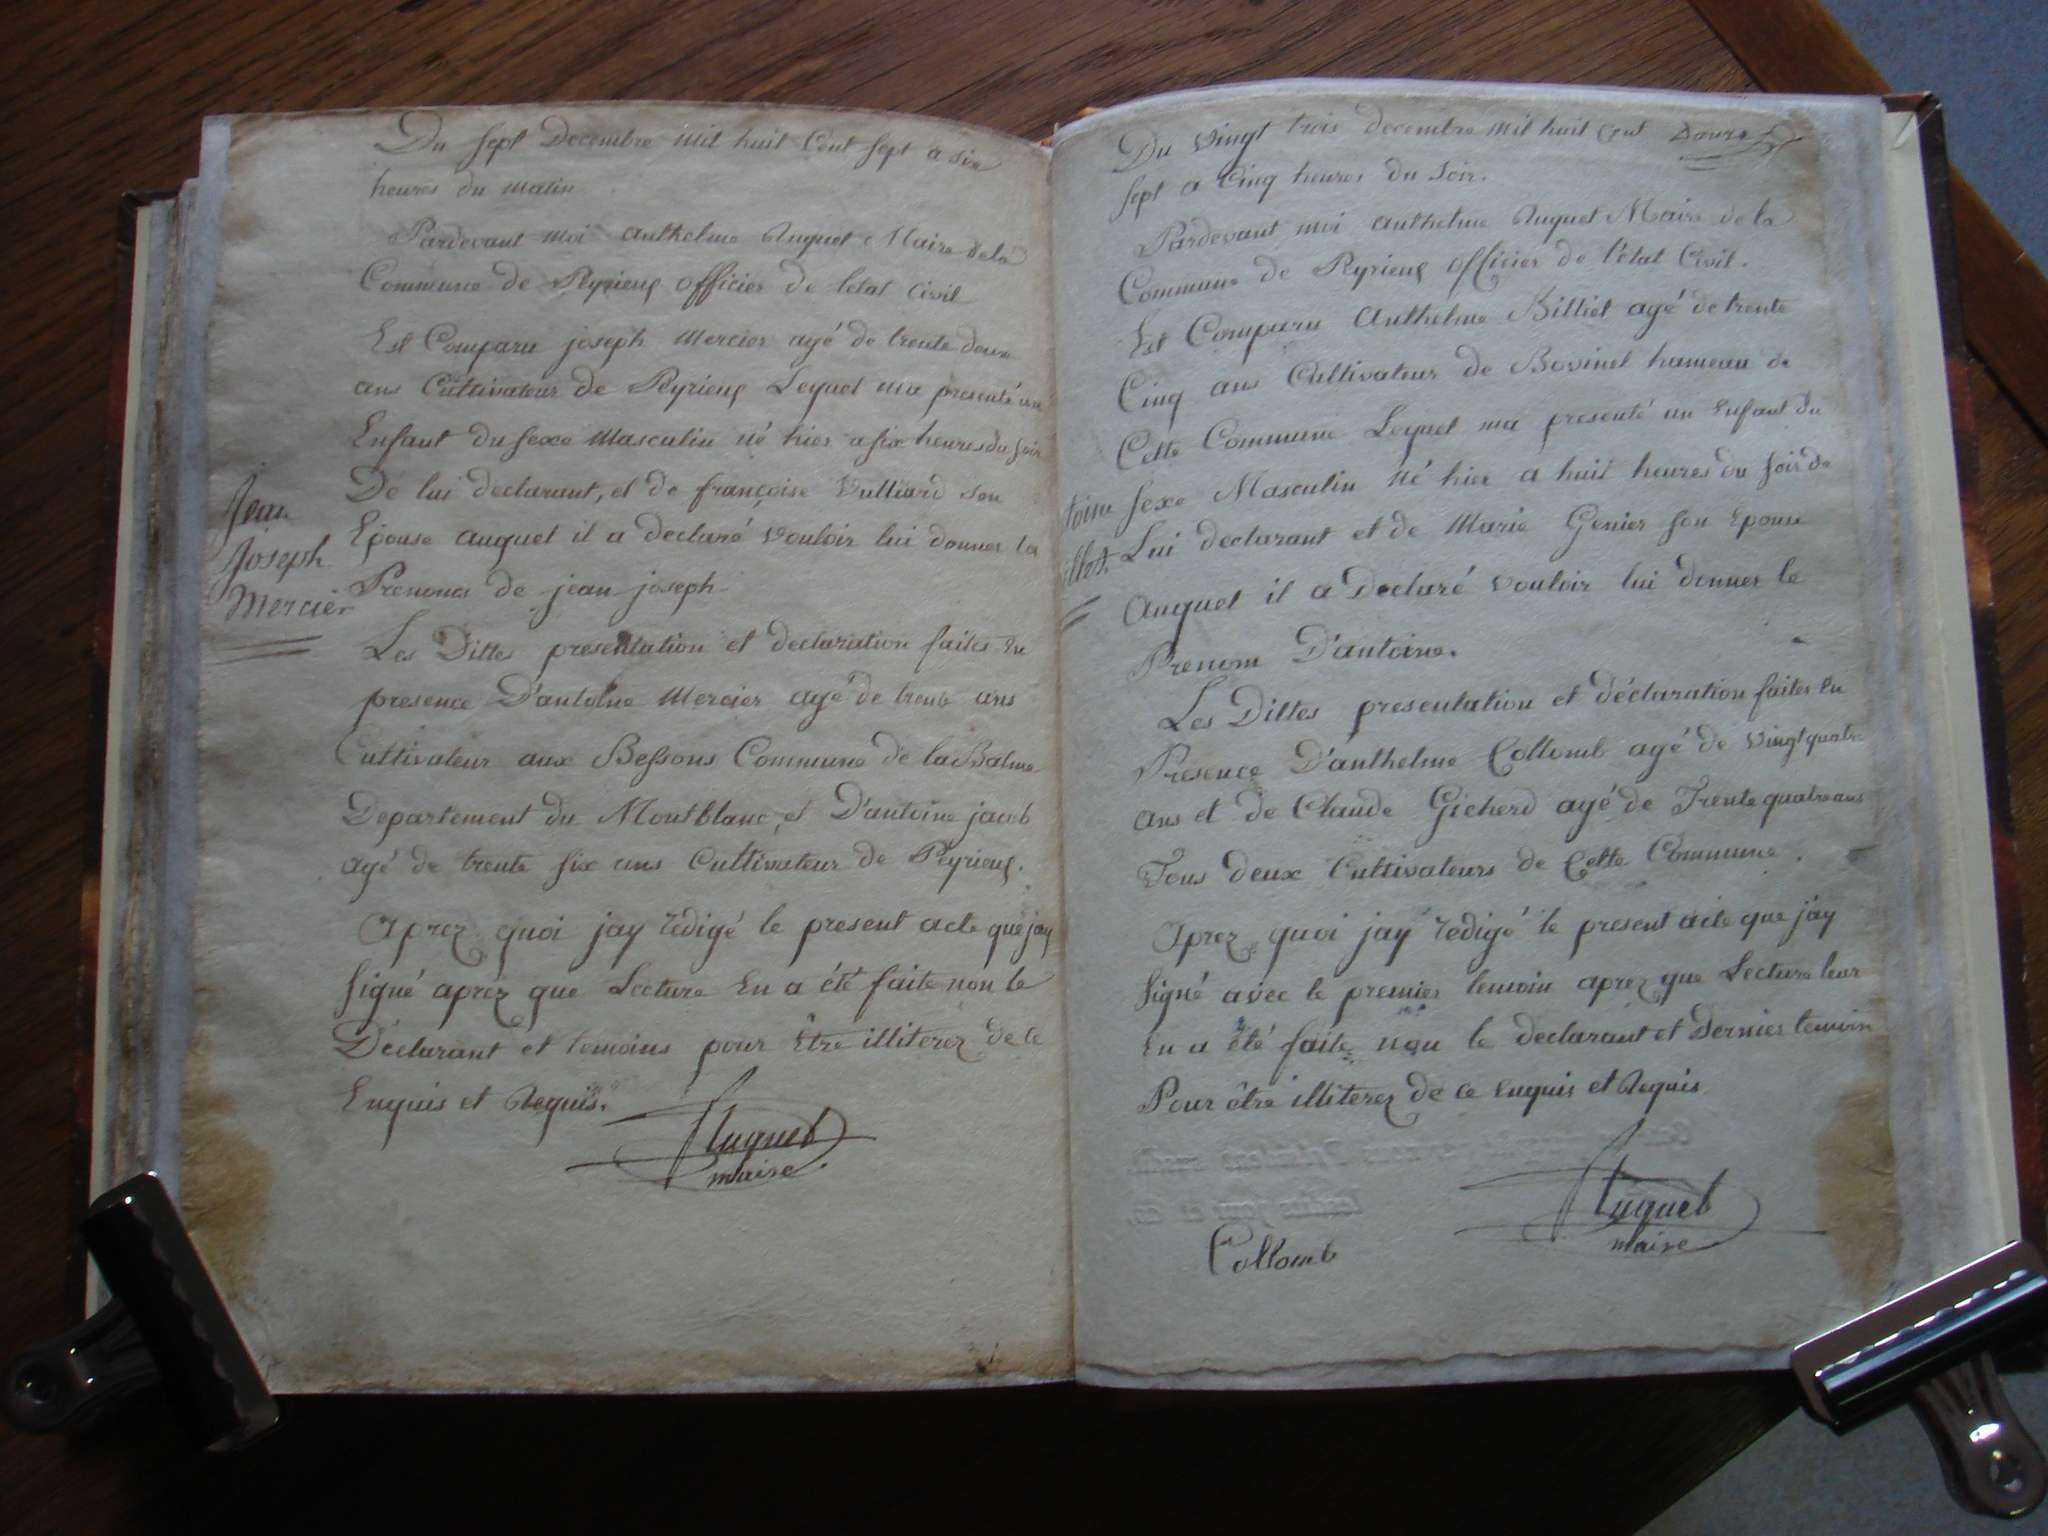 Du sept Decembre mil huit Cent sept a six
heures du matin
Pardevant moi anthelme Ruquet Maire de la
Commune de Peyrieux officier de letat Civil
Est Comparu joseph Mercier agé de trente deux
ans Cultivateur de Peyrieux Lequel ma presenté un
Enfant du sexe Masculin né hier a six heures du soir
De lui declarant, et de françoise Vulliard son
Epouse auquel il a declaré vouloir lui donner les
Prenoms de jean joseph
Jean
Joseph
Mercier
Les Dittes presentation et declaration faites En
presence D'antoine Mercier agé de trente ans
Cultivateur aux Bessons Commune de la Balme
Departement du Montblanc, et D'antoine jacob
agé de trente six ans Cultivateur de Peyrieux.
Aprez quoi jay redigé le present acte que jay
signé aprez que Lecture En a été faite non le
Déclarant et temoins pour Être illiterez de ce
Enquis et Requis.
Ruquet
maire
Du vingt trois decembre mil huit cent
sept a Cinq heures du Soir.
Pardevant moi anthelme Ruquet Maire de la
Commune de Peyrieux officier de l'état Civil.
Est Comparu Anthelme Billiet agé de trente
Cinq ans Cultivateur de Bovinel hameau de
Cette Commune Lequel ma presenté un Enfant du
toine sexe Masculin Né hier a huit heures du soir de
Lui declarant et de Marie Genier son Epouse
auquel il a Declaré vouloir lui donner le
Prenom D'antoine.
Les Dittes presentation et déclaration faites En
Presence D'anthelme Collomb agé de vingt quatre
ans et de Claude Gicherd agé de Trente quatre ans
Tous deux Cultivateurs de Cette Commune.
Aprez quoi jay redigé le present acte que j'ay
signé avec le premier temoin aprez que Lecture leur
En a été faite non le declarant et Dernier temoin
Pour être illiterez de ce enquis et Requis
Ruquet
maire
Collomb